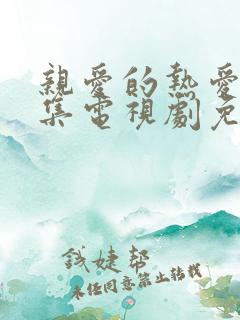 親愛的熱愛
集電視劇免
錢婕幫
未經同意禁止轉載